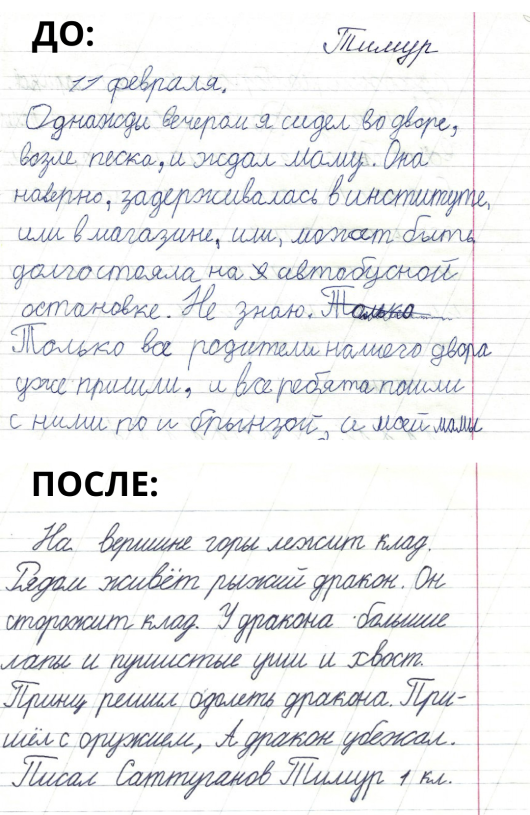 ДО:
Тимур
11 февраля.
Однажди вечерам я сидел во дворе,
возле песка, и ждал маму. Она
наверно, задерживалась в институте,
или в магазине, или, может быть
долго стояла на автобусной
остановке. Не знаю. Только
Только все родители нашего двора
уже пришли, и все ребята пошли
с ними по и брынзой, а моей мамы
ПОСЛЕ:
На вершине горы лежит клад.
Рядом живёт рыжий дракон. Он
сторожит клад. У дракона большие
лапы и пушистые уши и хвост.
Принц решил одолеть дракона. При-
шёл с оружием, А дракон убежал.
Писал Саттуганов Тимур 1 кл.